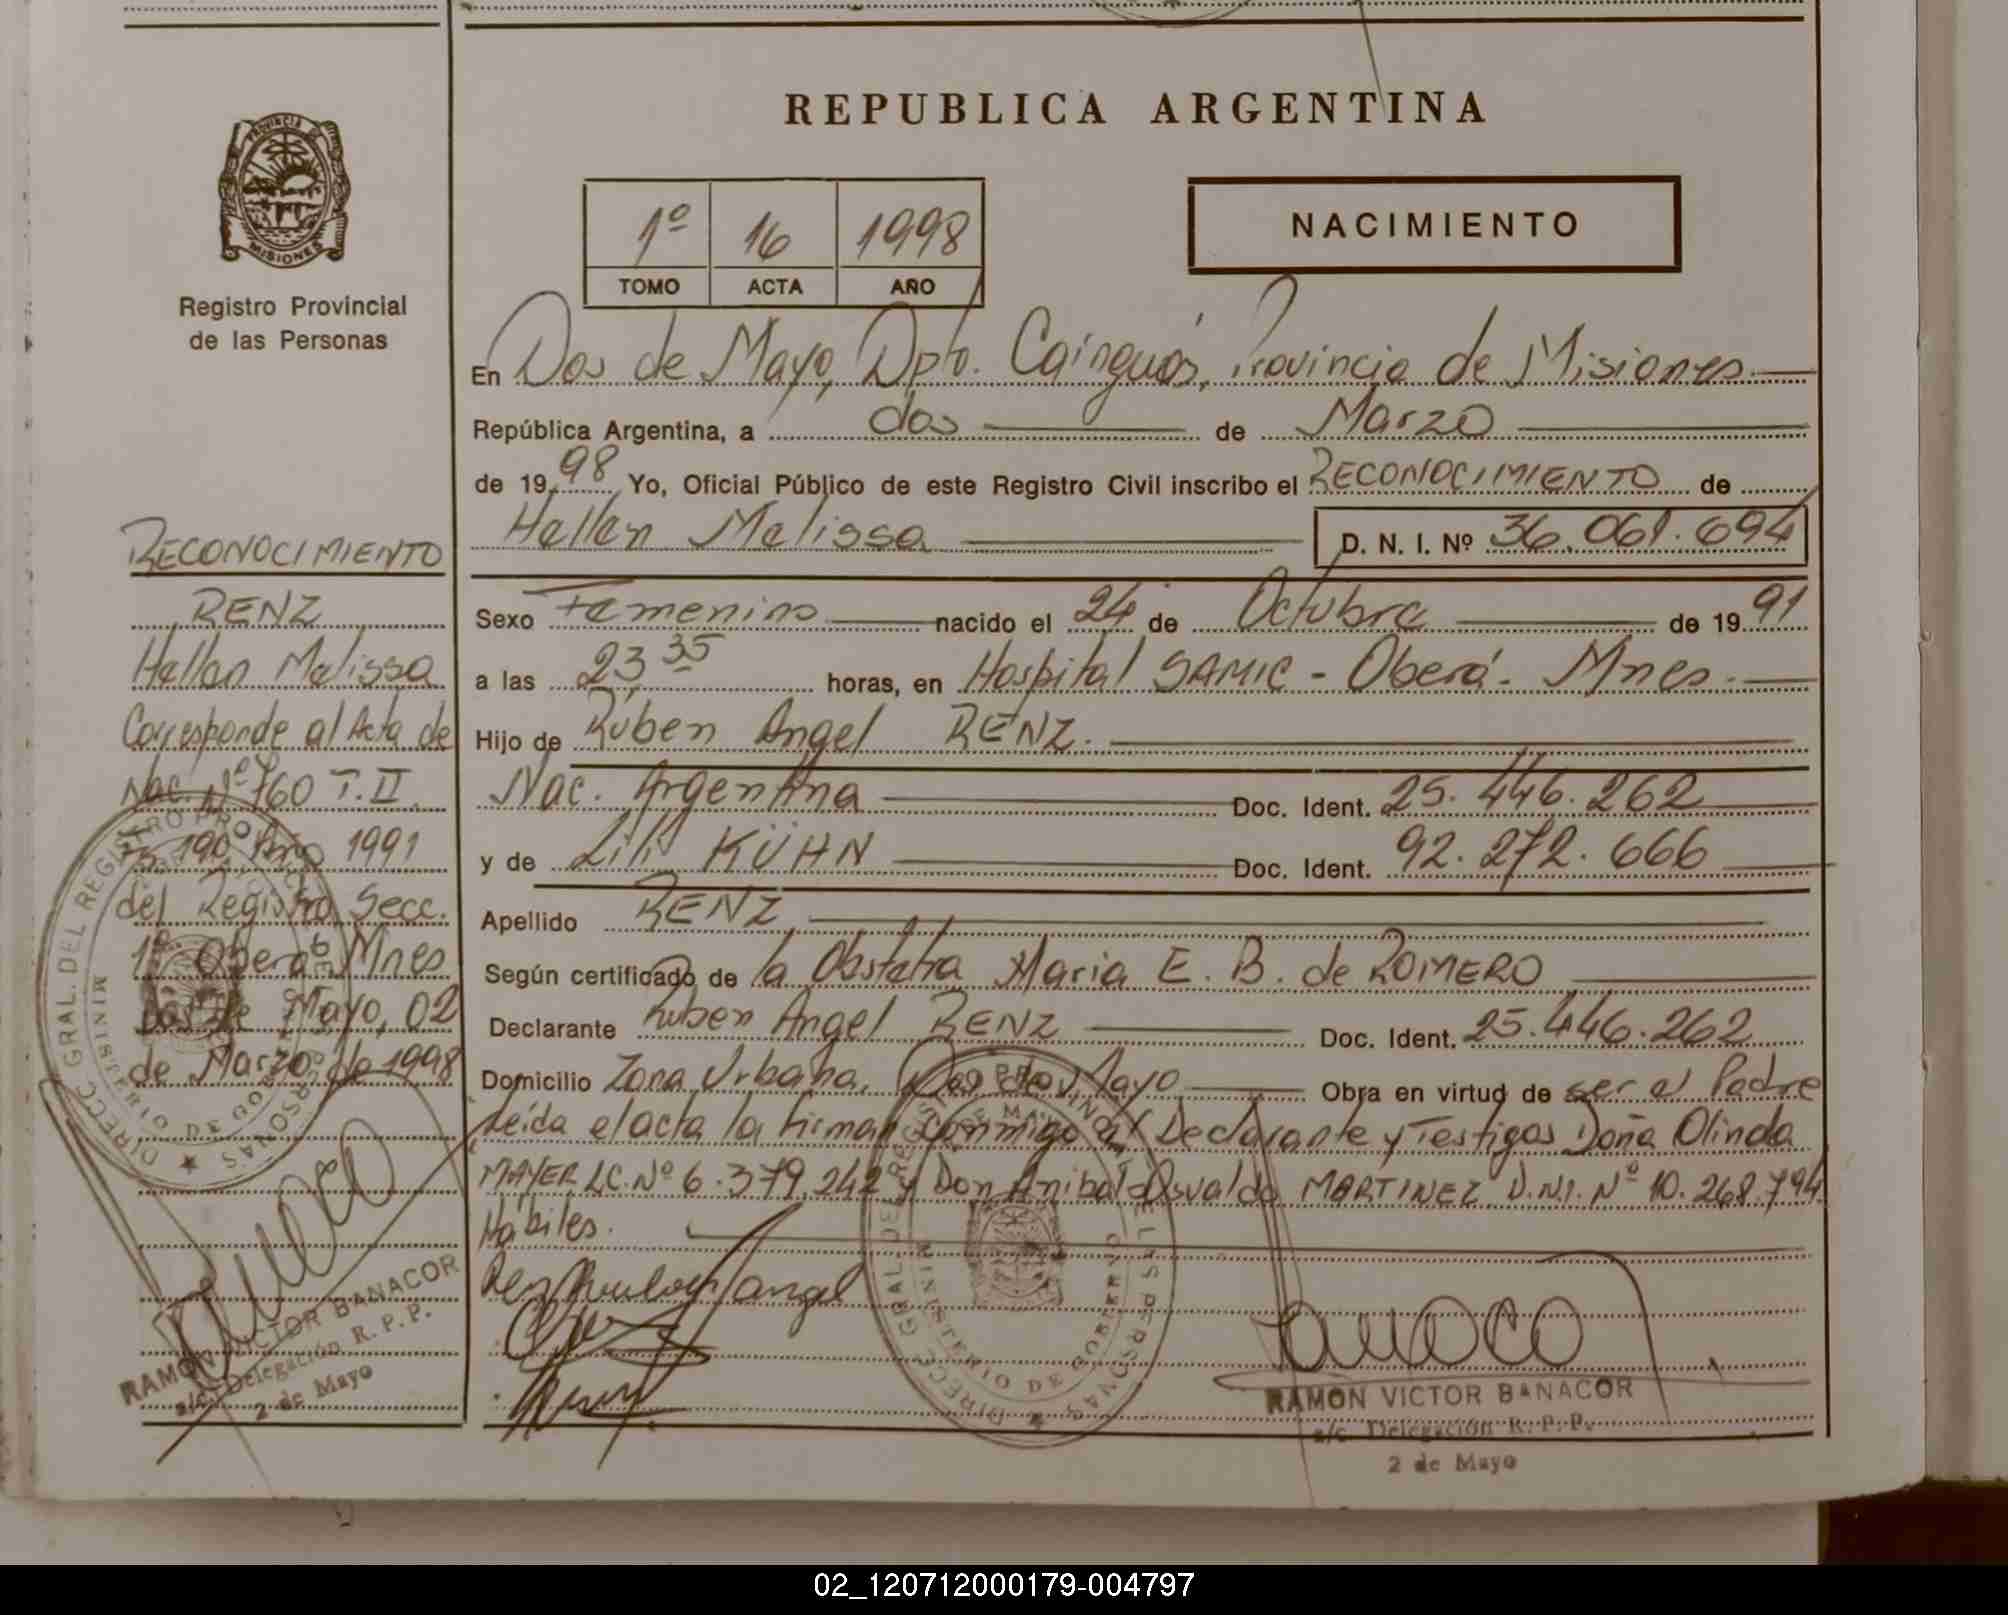 REPUBLICA ARGENTINA
PROVINCIA
MISIONES
Registro Provincial
de las Personas
1º 16 1998
TOMO ACTA AÑO
NACIMIENTO
En Dos de Mayo, Dpto. Cainguás, Provincia de Misiones.
República Argentina, a dos de Marzo
de 1998 Yo, Oficial Público de este Registro Civil inscribo el RECONOCIMIENTO de
Hellen Melissa D. N. I. Nº 36.061.694
Sexo Femenino nacido el 24 de Octubre de 1991
a las 23 35 horas, en Hospital SAMIC - Oberá - Mnes.
Hijo de Rúben Angel RENZ.
Nac. Argentina Doc. Ident. 25.446.262
y de Lili KÜHN Doc. Ident. 92.272.666
Apellido RENZ
Según certificado de la Obstetra Maria E. B. de ROMERO
Declarante Ruben Angel RENZ Doc. Ident. 25.446.262
Domicilio Zona Urbana, Dos de Mayo Obra en virtud de ser el Padre
Leída el acta la firman conmigo el Declarante y Testigos Doña Olinda
MAYER LC. Nº 6.379.242 y Don Anibal Osvaldo MARTINEZ D.N.I. Nº 10.268.794
Hábiles.
RECONOCIMIENTO
RENZ
Hellen Melissa
Corresponde al Acta de
Nac. Nº 760 T. II
Fº 190 Año 1991
del Registro Secc.
1º Oberá Mnes
Dos de Mayo, 02
de Marzo de 1998
RAMON VICTOR BANACOR
a/c. Delegación R. P. P.
2 de Mayo
Renz Ruben angel
DIRECC. GRAL. DEL REGISTRO PROVINCIAL DE LAS PERSONAS
MINISTERIO DE GOBIERNO
RAMON VICTOR BANACOR
a/c. Delegación R. P. P.
2 de Mayo
02_120712000179-004797